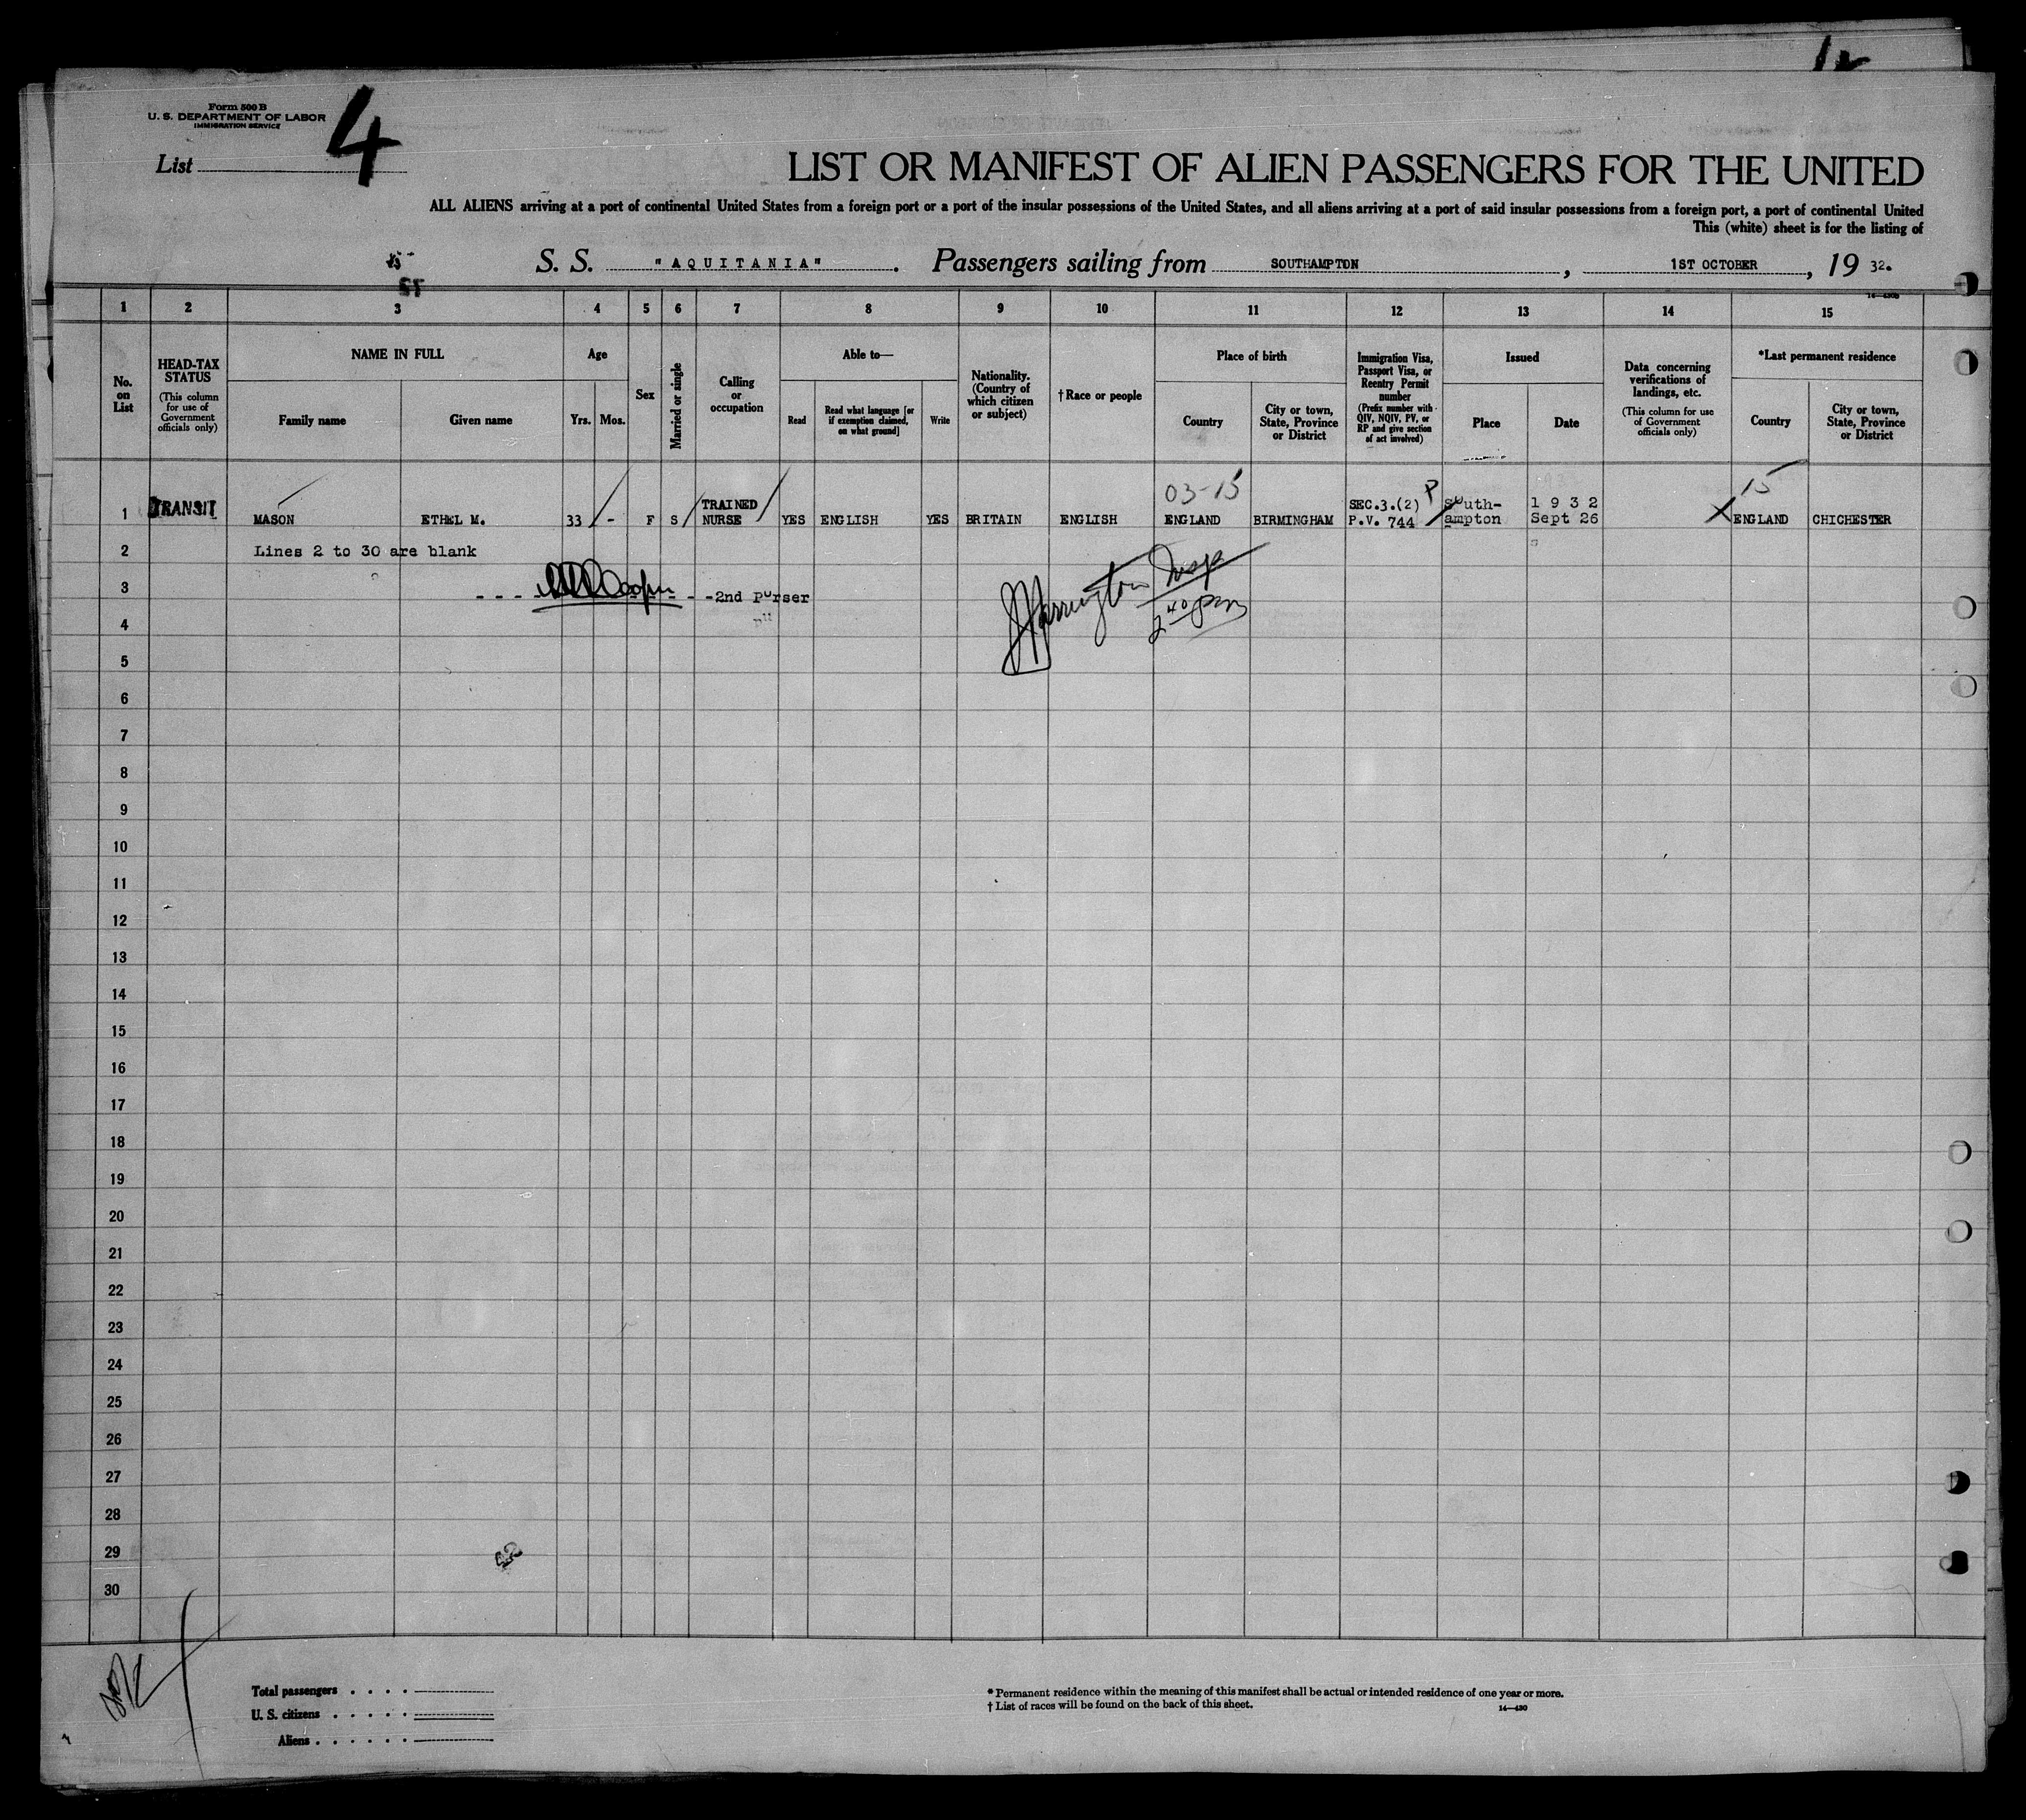 Form 500 B
U. S. DEPARTMENT OF LABOR
IMMIGRATION SERVICE
List 4
LIST OR MANIFEST OF ALIEN PASSENGERS FOR THE UNITED
ALL ALIENS arriving at a port of continental United States from a foreign port or a port of the insular possessions of the United States, and all aliens arriving at a port of said insular possessions from a foreign port, a port of continental United
This (white) sheet is for the listing of
S. S. "AQUITANIA". Passengers sailing from SOUTHAMPTON, 1ST OCTOBER, 19 32.
1 2 3 4 5 6 7 8 9 10 11 12 13 14 15
No. on List
HEAD-TAX STATUS
(This column for use of Government officials only)
NAME IN FULL
Family name
Given name
Age
Yrs.
Mos.
Sex
Married or single
Calling or occupation
Able to—
Read
Read what language [or if exemption claimed, on what ground]
Write
Nationality. (Country of which citizen or subject)
† Race or people
Place of birth
Country
City or town, State, Province or District
Immigration Visa, Passport Visa, or Reentry Permit number
(Prefix number with QIV, NQIV, PV, or RP and give section of act involved)
Issued
Place
Date
Data concerning verifications of landings, etc.
(This column for use of Government officials only)
*Last permanent residence
Country
City or town, State, Province or District
03-15
P
15
1 TRANSIT MASON ETHEL M. 33 - F S TRAINED NURSE YES ENGLISH YES BRITAIN ENGLISH ENGLAND BIRMINGHAM SEC.3.(2) P.V. 744 South-ampton 1932 Sept 26 X ENGLAND CHICHESTER
2 Lines 2 to 30 are blank
3 - - - - - - 2nd Purser
Harrington Insp
2 40 pm
4
5
6
7
8
9
10
11
12
13
14
15
16
17
18
19
20
21
22
23
24
25
26
27
28
29
30
Total passengers . . . .
U. S. citizens . . . . .
Aliens . . . . . .
* Permanent residence within the meaning of this manifest shall be actual or intended residence of one year or more.
† List of races will be found on the back of this sheet.
14—430